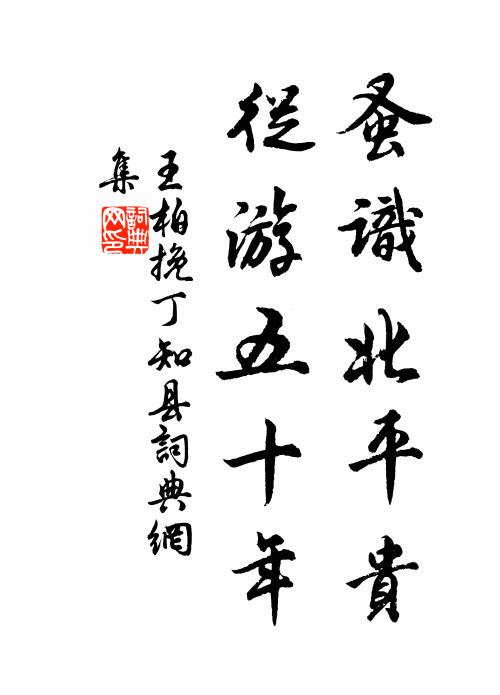 蚤識北平貴
從游五十年
王柏挽丁知县詞典網
集
詞典
网印